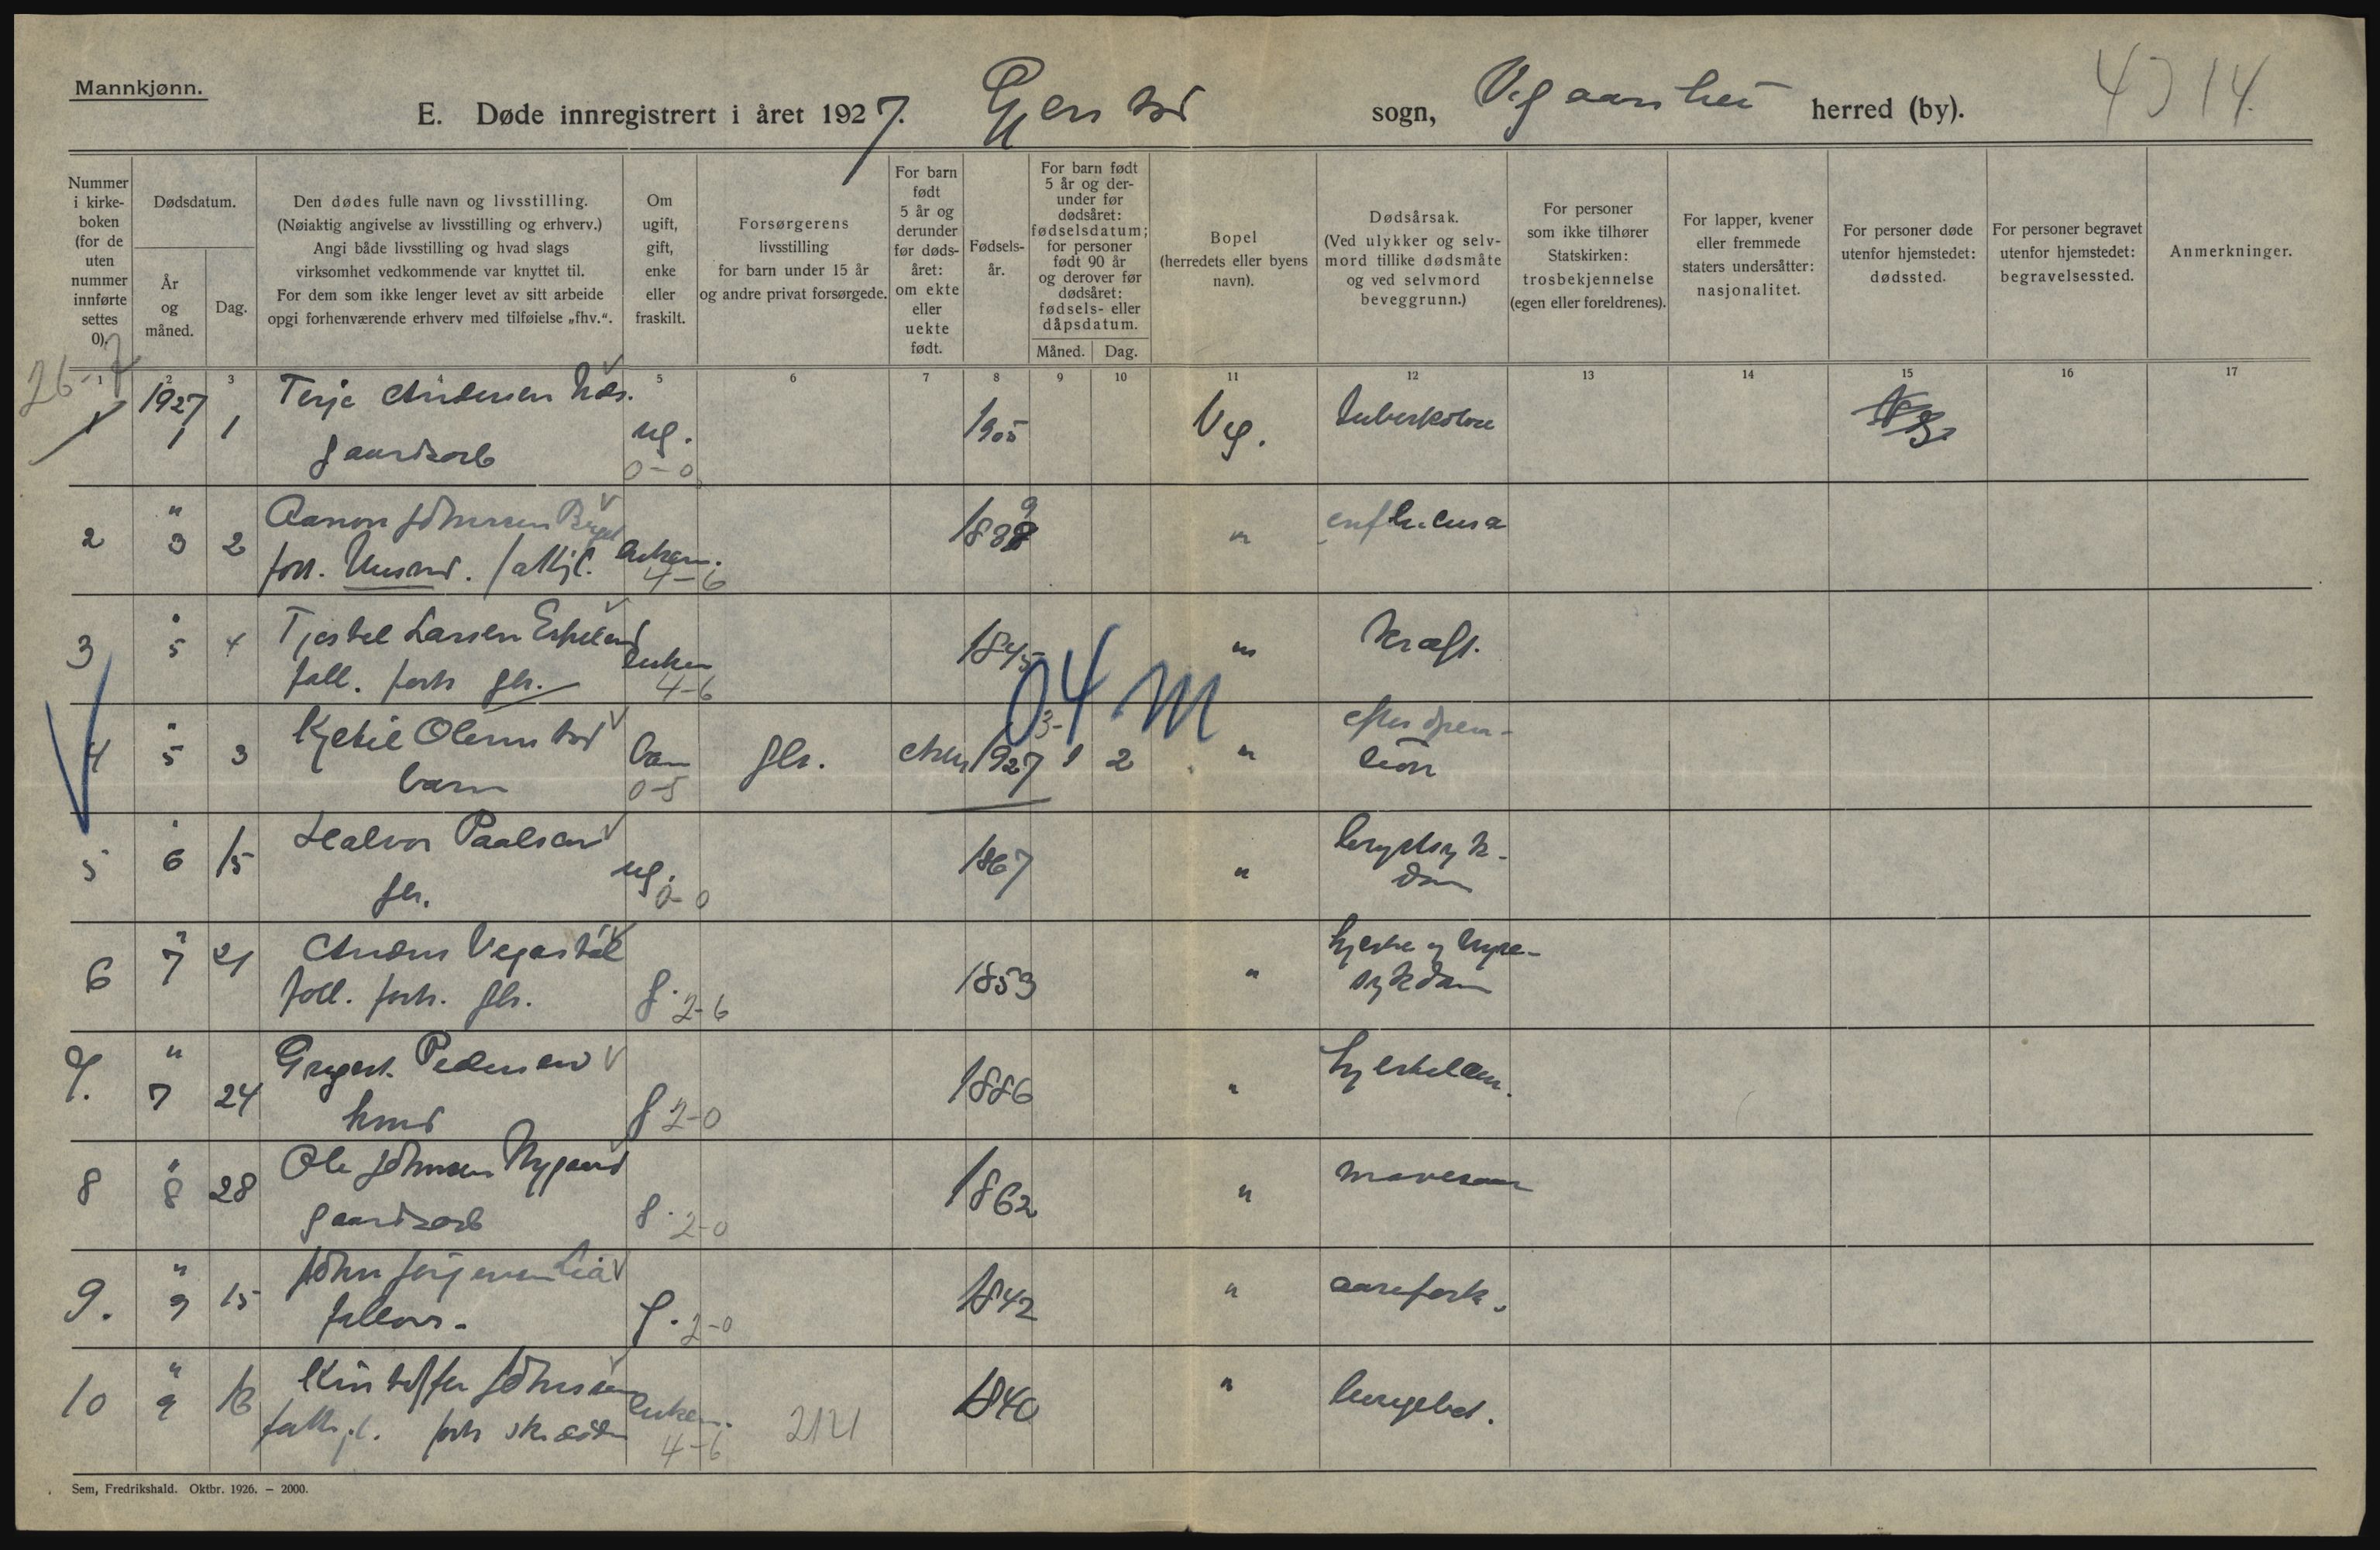 Mannkjønn.
E. Døde innregistrert i året 1927. Gjerstad sogn, Vegaarshei herred (by). 4
14.
Nummer i kirkeboken (for de uten nummer innførte settes 0).
Dødsdatum.
År og måned.
Dag.
Den dødes fulle navn og livsstilling.
(Nøiaktig angivelse av livsstilling og erhverv.)
Angi både livsstilling og hvad slags
virksomhet vedkommende var knyttet til.
For dem som ikke lenger levet av sitt arbeide
opgi forhenværende erhverv med tilføielse „fhv.“.
Om ugift, gift, enke eller fraskilt.
Forsørgerens
livsstilling
for barn under 15 år
og andre privat forsørgede.
For barn født 5 år og derunder før dødsåret: om ekte eller uekte født.
Fødselsår.
For barn født 5 år og derunder før dødsåret: fødselsdatum; for personer født 90 år og derover før dødsåret: fødsels- eller dåpsdatum.
Måned.
Dag.
Bopel
(herredets eller byens
navn).
Dødsårsak.
(Ved ulykker og selvmord tillike dødsmåte
og ved selvmord
beveggrunn.)
For personer
som ikke tilhører
Statskirken:
trosbekjennelse
(egen eller foreldrenes).
For lapper, kvener
eller fremmede
staters undersåtter:
nasjonalitet.
For personer døde
utenfor hjemstedet:
dødssted.
For personer begravet
utenfor hjemstedet:
begravelsessted.
Anmerkninger.
1 2 3 4 5 6 7 8 9 10 11 12 13 14 15 16 17
26-7
1 1927 1 1 Terje Andersen Næs. ug. 1905 Veg. tuberkolose
gaardsarb 0-0
2 " 3 2 Aanon Johnsen 1889 " enfluensa
enkem. 4-6
3 " 5 4 Tjøstel Larsen Espeland enkem 1845 " kræft.
fall. forh gbr. 4-6
04 M
4 " 5 3 Kjetil Olsen barn gbr. 1927 1 2 " efter operation
barn 0-5
5 " 6 15 Halvor Paalsen ug. 1867 " brystsykdom
gbr. 0-0
6 " 7 21 Anders Vegarstøl 1853 " hjerte og nyresykdom
fall. forh. gbr. g. 2-6
7. " 7 24 Gregert Pedersen 1886 "
g 2-0
8 " 8 28 Ole Johnsen Nygaard 1862 " mavesaar
gaardsarb g. 2-0
9. " 9 15 John Jørgensen Lia 1842 " aarefork.
g. 2-0
10 " 9 16 Kristoffer Johnsen enkem. 1840 " lungebet.
forh skræder 4-6 2121
Sem, Fredrikshald. Oktbr. 1926. – 2000.